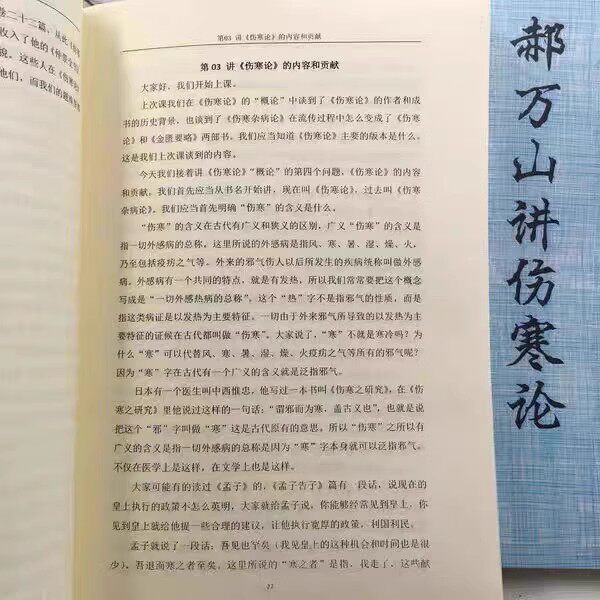 卷二十三篇,从此《伤
收入了他的《仲景全
说。这些人在《伤寒
他们,而我们的题
第03 讲《伤寒论》的内容和贡献
第 03 讲《伤寒论》的内容和贡献
大家好,我们开始上课。
上次课我们在《伤寒论》的“概论”中谈到了《伤寒论》的作者和成
书的历史背景,也谈到了《伤寒杂病论》在流传过程中怎么变成了《伤寒
论》和《金匮要略》两部书。我们应当知道《伤寒论》主要的版本是什么。
这是我们上次课谈到的内容。
今天我们接着讲《伤寒论》“概论”的第四个问题,《伤寒论》的内容
和贡献。我们首先应当从书名开始讲,现在叫《伤寒论》,过去叫《伤寒
杂病论》,我们应当首先明确“伤寒”的含义是什么。
“伤寒”的含义在古代有广义和狭义的区别,广义“伤寒”的含义是
指一切外感病的总称,这里所说的外感病是指风、寒、暑、湿、燥、火,
乃至包括疫疠之气等。外来的邪气伤人以后所发生的疾病统称叫做伤寒
病。外感病有一个共同的特点,就是有发热,所以我们常常要把这个概念
写成是“一切外感热病的总称”。这个“热”字不是指邪气的性质,而是
指这类病证是以发热为主要特征。一切由于外来邪气所导致的以发热为主
要特征的证候在古代都叫做“伤寒”。大家说了,“寒”不就是寒冷吗?为
什么“寒”可以代替风、寒、暑、湿、燥、火疫疠之气等所有的邪气呢?
因为“寒”字在古代有一个广义的含义就是泛指邪气。
日本有一个医生叫中西惟忠,他写过一本书叫《伤寒之研究》,在《伤
寒之研究》里他说过这样的一句话,“谓邪而为寒,盖古义也”,也就是说
把这个“邪”字叫做“寒”这是古代原有的意思。所以“伤寒”之所以有
广义的含义是指一切外感病的总称是因为“寒”字本身就可以泛指邪气。
不仅在医学上是这样,在文学上也是这样。
大家可能有的读过《孟子》的,《孟子告子》篇有一段话,说现在的
皇上执行的政策不怎么英明,大家就给孟子说,你能够经常见到皇上,你
见到皇上就给他提一些合理的建议,让他执行宽厚的政策,利国利民。
孟子就说了一段话:吾见也罕矣(我见皇上的这种机会和时间也是很
少),吾退而寒之者至矣。这里所说的“寒之者”是指,我走了,这些献
22
郝万山讲伤寒论